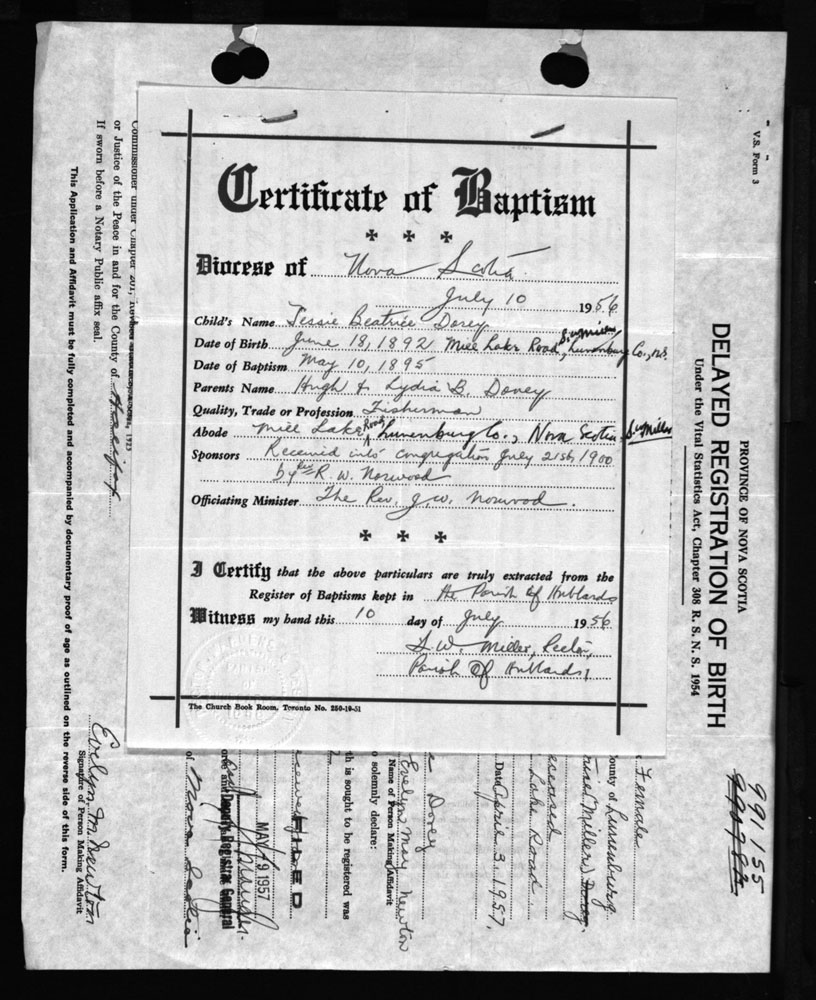 Certificate of Baptism
Diocese of Nova Scotia
July 10 1956
Child's Name Jessie Beatrice Dorey
Date of Birth June 18, 1892 Mill Lake Road, Lunenburg Co., N.S.
Date of Baptism May 10, 1895
Parents Name Hugh & Lydia B. Dorey
Quality, Trade or Profession Fisherman
Abode Mill Lake Road Lunenburg Co., Nova Scotia
Sponsors Received into congregation July 21st, 1900
by Rev R. W. Norwood
Officiating Minister The Rev. J. W. Norwood.
I Certify that the above particulars are truly extracted from the
Register of Baptisms kept in the Parish of Hubbards
Witness my hand this 10 day of July 1956
Miller, Rector,
Parish Of Hubbards
The Church Book Room, Toronto No. 250-10-51
V.S. Form 3
PROVINCE OF NOVA SCOTIA
DELAYED REGISTRATION OF BIRTH
Under the Vital Statistics Act, Chapter 308 R. S. N. S. 1954
991155
Female
ounty of Lunenburg
Miller) Dorey
Lake Road
Date April 3, 1957.
Dorey
Evelyn May Newton
Name of Person Making Affidavit
o solemnly declare:
th is sought to be registered was
FILED
MAY 9 1957
Deputy Registrar General
of Nova Scotia
Commissioner under Chapter 201, Revised Statutes, 1923
or Justice of the Peace in and for the County of Halifax
If sworn before a Notary Public affix seal.
Evelyn M. Newton
Signature of Person Making Affidavit
This Application and Affidavit must be fully completed and accompanied by documentary proof of age as outlined on the reverse side of this form.